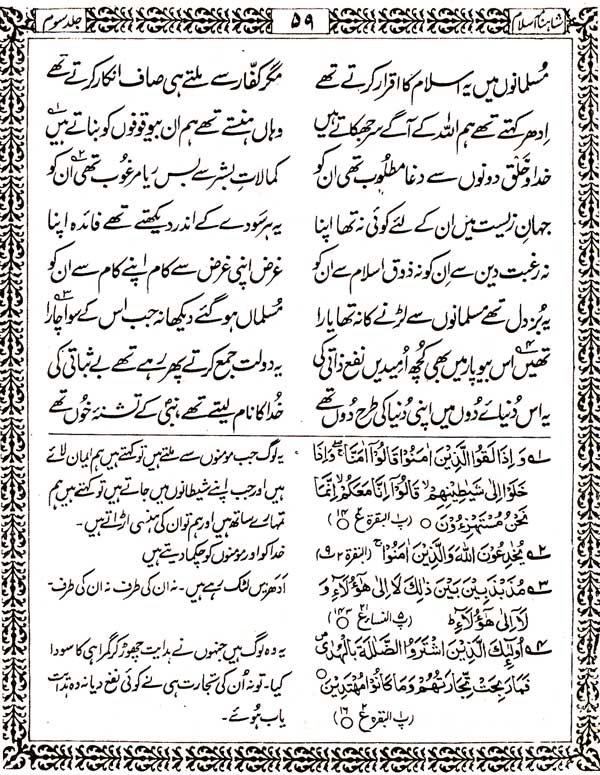 شاہنامۂ اسلام ۵۹ جلد سوم
مُسلمانوں میں یہ اسلام کا اقرار کرتے تھے مگر کفّار سے ملتے ہی صاف انکار کرتے تھے
اِدھر کہتے تھے ہم اللہ کے آگے سر جھکاتے ہیں وہاں ہنستے تھے ہم ان بیوقوفوں کو بناتے ہیں ۱
خدا و خَلق دونوں سے دغا مطلُوب تھی ان کو ۲ کمالاتِ بشر سے بس ریا مرغُوب تھی ان کو
جہانِ زیست میں ان کے لئے کوئی نہ تھا اپنا یہ ہر سَودے کے اندر دیکھتے تھے فائدہ اپنا
نہ رغبت دین سے اِن کو نہ ذوق اسلام سے ان کو غرض اپنی غرض سے کام اپنے کام سے ان کو
یہ بُزدل تھے مسلمانوں سے لڑنے کا نہ تھا یارا مُسلماں ہو گئے دیکھا نہ جب اس کے سوا چارا ۳
تھیں اس بیوپار میں بھی کُچھ اُمیدیں نفع ذاتی کی ۴ یہ دولت جمع کرتے پھر رہے تھے بے ثباتی کی
یہ اس دُنیائے دُوں میں اپنی دُنیا کی طرح دُوں تھے خُدا کا نام لیتے تھے نبیؐ کے تشنۂ خُوں تھے
۱؎ وَ اِذَا لَقُوا الَّذِيْنَ اٰمَنُوْا قَالُوْۤا اٰمَنَّا ۚۖ وَاِذَا
خَلَوْا اِلٰى شَيٰطِيْنِهِمْ ۙ قَالُوْۤا اِنَّا مَعَكُمْ ۙ اِنَّمَا
نَحْنُ مُسْتَهْزِءُوْنَ ○ (پ البقرہ ع ۲ ۱۴)
یہ لوگ جب مومنوں سے ملتے ہیں تو کہتے ہیں ہم ایمان لائے
ہیں اور جب اپنے شیطانوں میں جاتے ہیں تو کہتے ہیں ہم
تمہارے ساتھ ہیں اور ہم تو ان کی ہنسی اڑاتے ہیں۔
۲؎ يُخٰدِعُوْنَ اللهَ وَالَّذِيْنَ اٰمَنُوْا ۚ (البقرہ ۲ـ۹)
خدا کو اور مومنوں کو چکما دیتے ہیں
۳؎ مُذَبْذَبِيْنَ بَيْنَ ذٰلِكَ لَاۤ اِلٰى هٰۤؤُلَآءِ وَ
لَاۤ اِلٰى هٰۤؤُلَآءِ ؕ (پ النساء ع ۱۴۳)
ادھر میں لٹک رہے ہیں۔ نہ ان کی طرف نہ ان کی طرف۔
۴؎ اُولٰٓئِكَ الَّذِيْنَ اشْتَرَوُا الضَّلٰلَةَ بِالْهُدٰى
فَمَا رَبِحَتْ تِّجَارَتُهُمْ وَمَا كَانُوْا مُهْتَدِيْنَ ○
(پ البقرہ ع ۲ ۱۶)
یہ وہ لوگ ہیں جنہوں نے ہدایت چھوڑ کر گمراہی کا سودا
کیا۔ تو نہ اُن کی تجارت ہی نے کوئی نفع دیا نہ وہ ہدایت
یاب ہُوئے۔